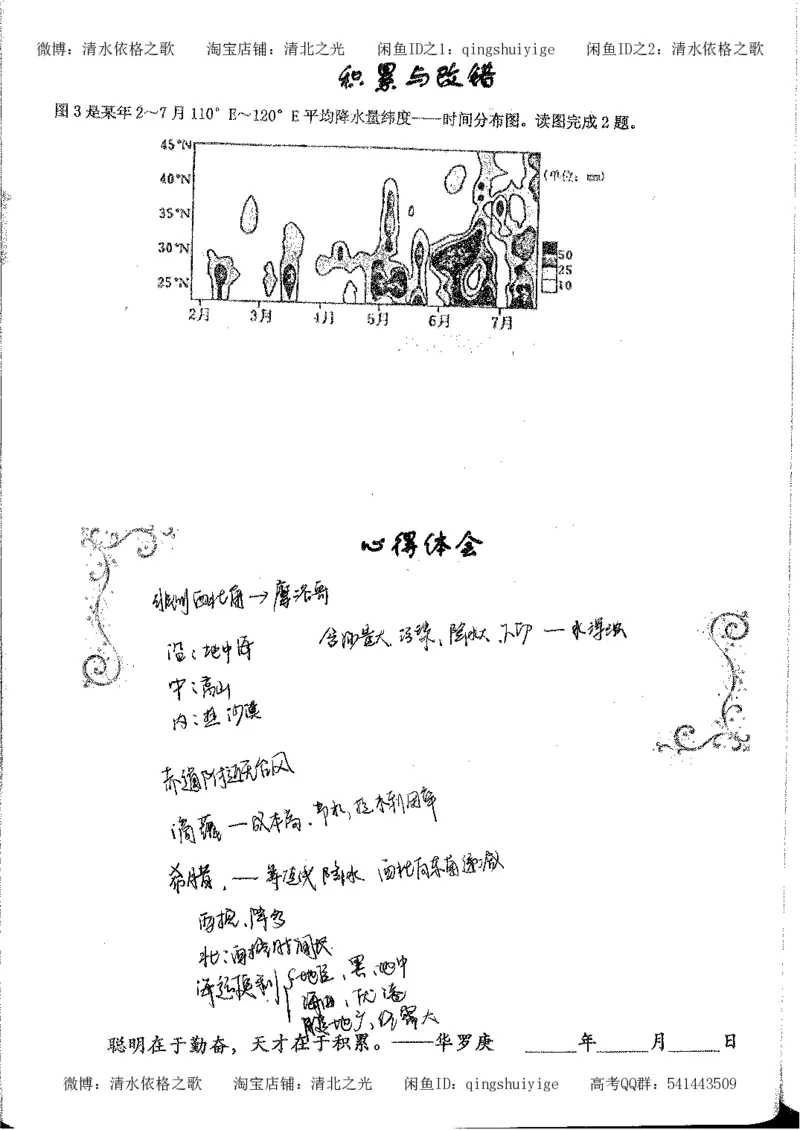 微博：清水依格之歌 淘宝店铺：清北之光 闲鱼ID之1：qingshuiyige 闲鱼ID之2：清水依格之歌
积累与改错
图3是某年2～7月110°E～120°E平均降水量纬度——时间分布图。读图完成2题。
45°N
40°N
35°N
30°N
25°N
(单位：mm)
50
25
10
2月 3月 4月 5月 6月 7月
心得体会
非洲西北角→摩洛哥
沿：地中海
含沙量大、污染、降水大、下切—水浑浊
中：高山
内：热沙漠
赤道附近无台风
滴灌—成本高.节水,提水利用率
希腊，—等值线 降水 西北向东南递减
西坡.降多
北：西
海运便利
地区
海
腹地广,
聪明在于勤奋，天才在于积累。——华罗庚 年 月 日
微博：清水依格之歌 淘宝店铺：清北之光 闲鱼ID：qingshuiyige 高考QQ群：541443509